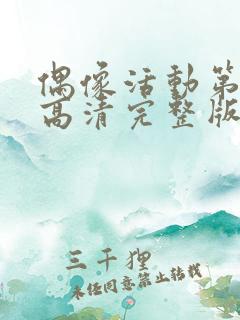 偶像活動第
高清完整版
三千狸
未经同意禁止转载